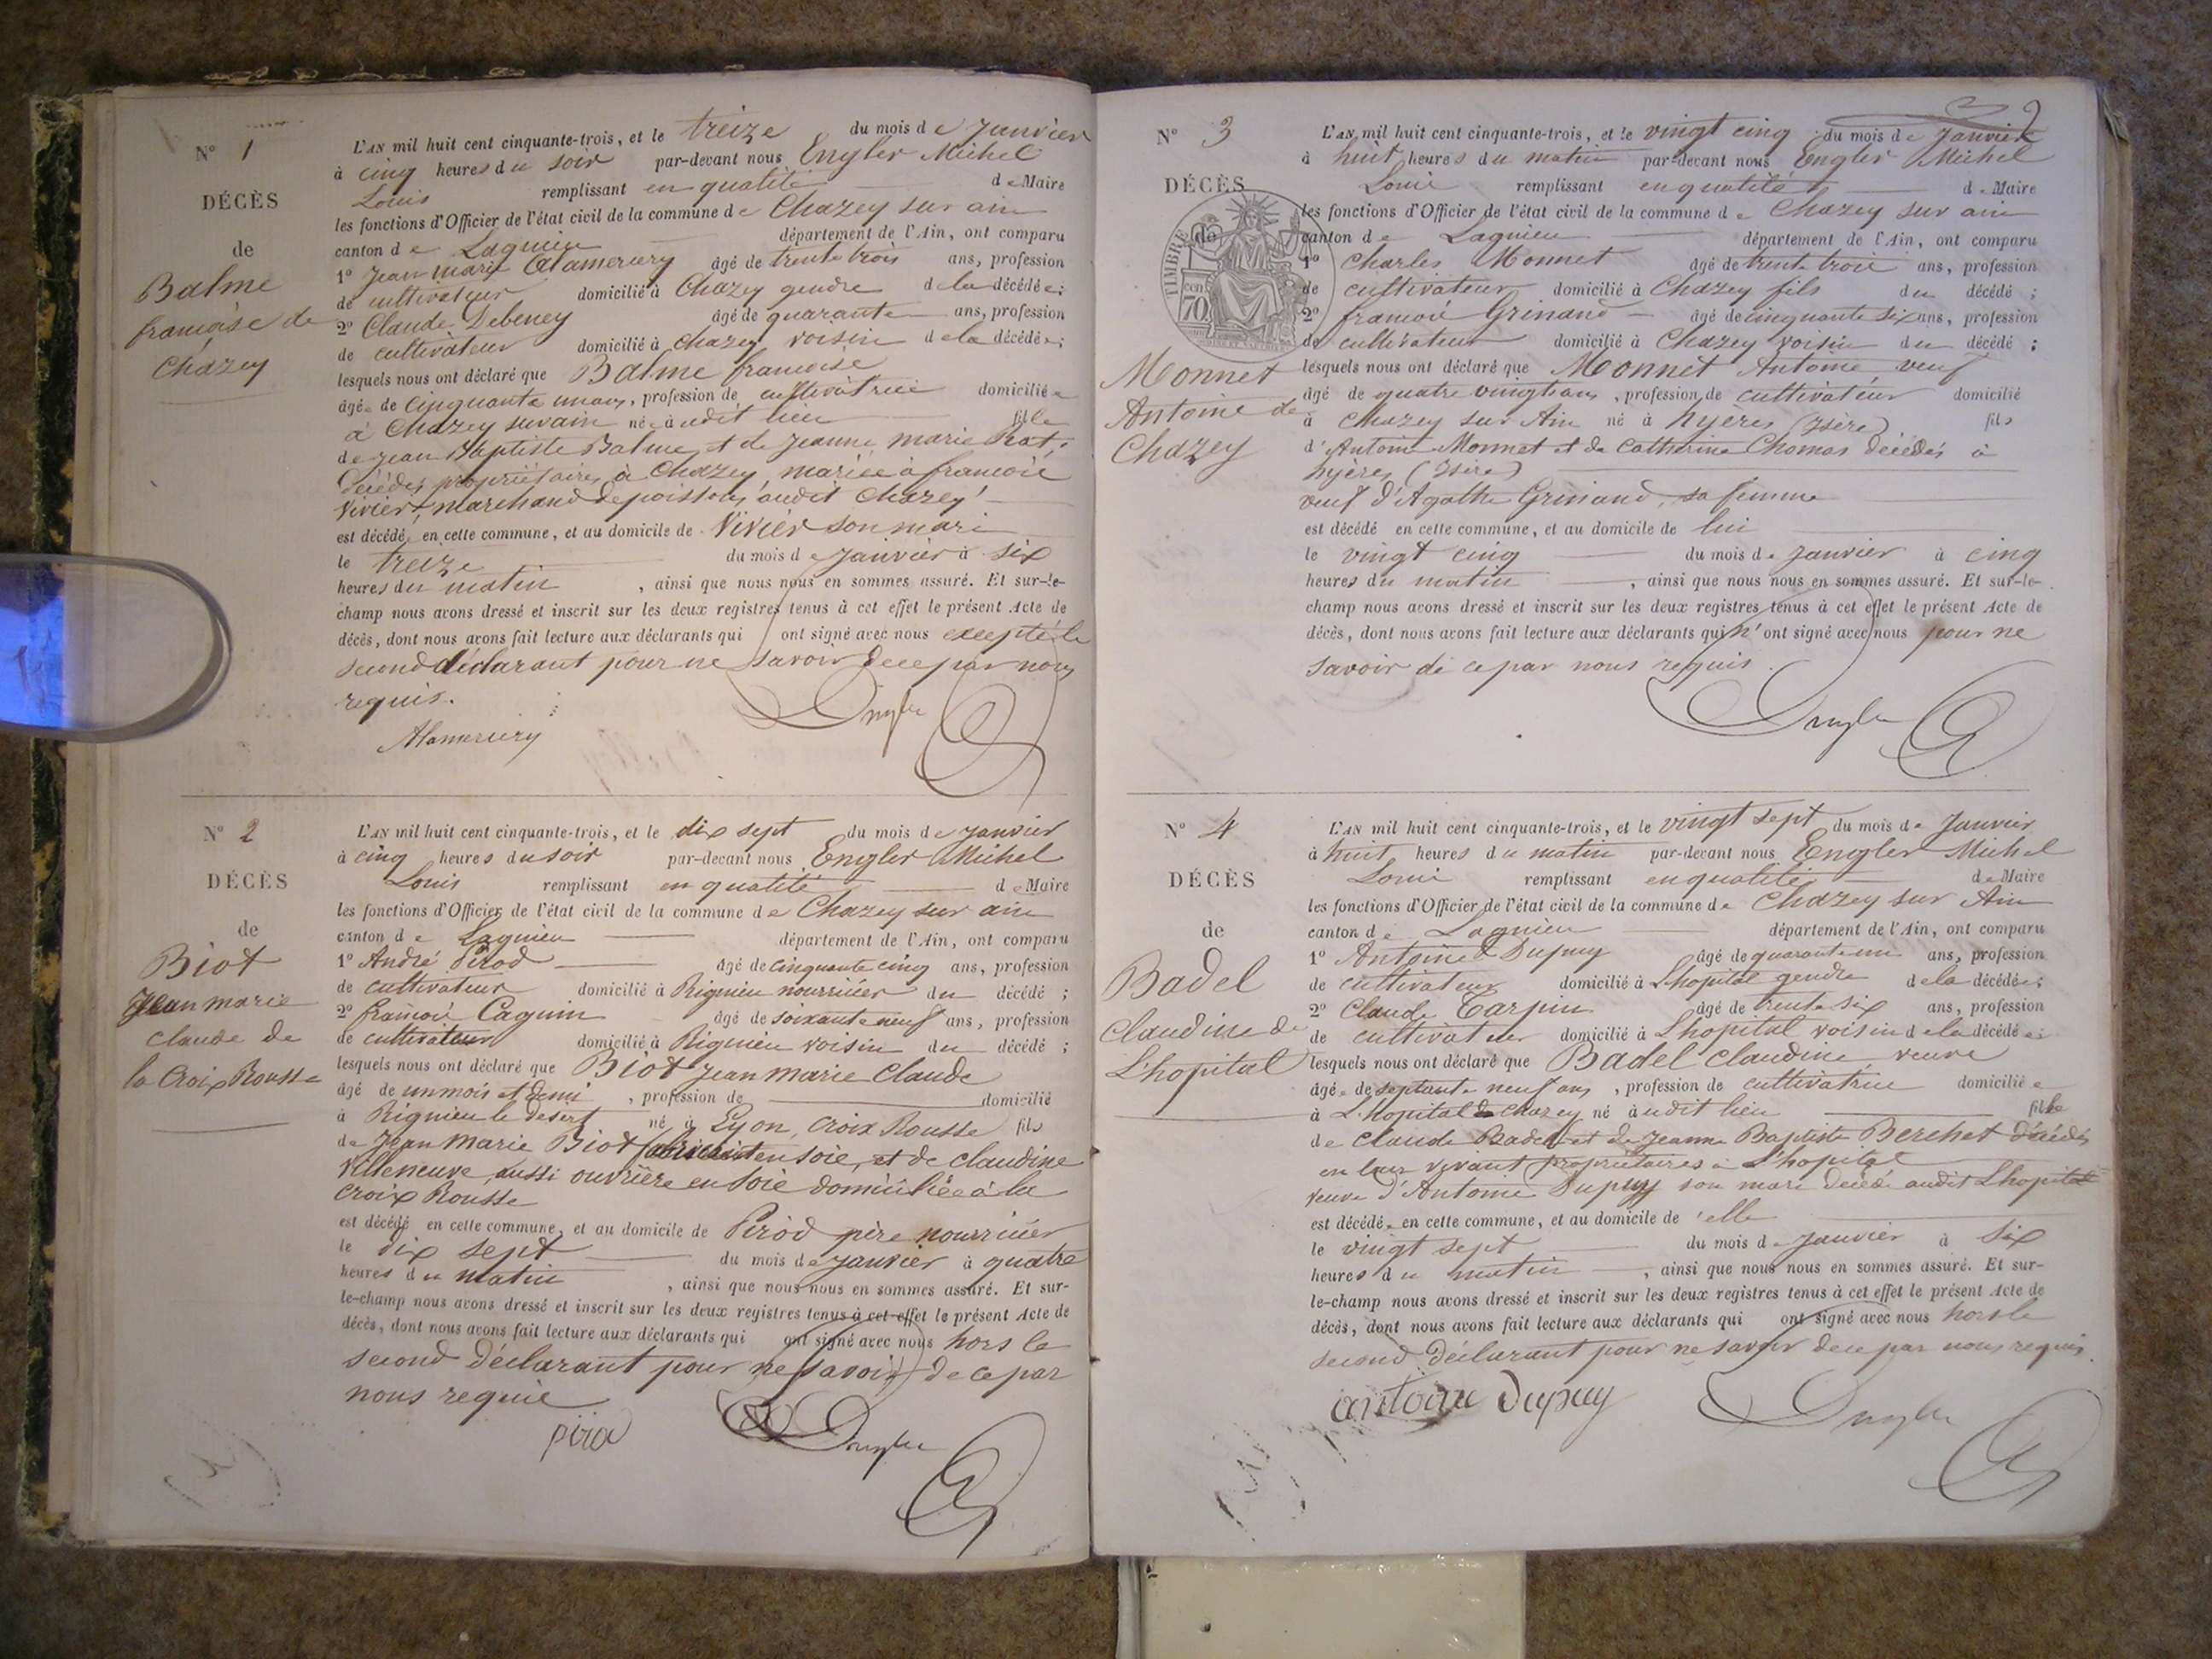 N° 1
DÉCÈS
de
Balme
francoise de
Chazey
L'AN mil huit cent cinquante-trois, et le treize du mois de Janvier
à cinq heures du soir par-devant nous Engler Michel
Louis remplissant en qualité de Maire
les fonctions d'Officier de l'état civil de la commune de Chazey sur ain
canton de Lagnieu département de l'Ain, ont comparu
1° Jean marie Alamercery âgé de trente trois ans, profession
de cultivateur domicilié à Chazey gendre de la décédée;
2° Claude Debeney âgé de quarante ans, profession
de cultivateur domicilié à chazey voisin de la décédée;
lesquels nous ont déclaré que Balme francoise
âgée de cinquante un ans, profession de cultivatrice domiciliée
à Chazey sur ain née audit lieu fille
de jean Baptiste Balme et de jeanne marie Rat,
décédés propriétaires à Chazey mariée à francois
Vivier, marchand de poissons audit Chazey
est décédé en cette commune, et au domicile de Vivier son mari
le treize du mois de janvier à six
heures du matin, ainsi que nous nous en sommes assuré. Et sur-le-
champ nous avons dressé et inscrit sur les deux registres tenus à cet effet le présent Acte de
décès, dont nous avons fait lecture aux déclarants qui ont signé avec nous excepté le
second déclarant pour ne savoir de ce par nous
requis.
Alamercery Engler
N° 2
DÉCÈS
de
Biot
Jean marie
claude de
la Croix Rousse
L'AN mil huit cent cinquante-trois, et le dix sept du mois de janvier
à cinq heures du soir par-devant nous Engler Michel
Louis remplissant en qualité de Maire
les fonctions d'Officier de l'état civil de la commune de Chazey sur ain
canton de Lagnieu département de l'Ain, ont comparu
1° André Pirod âgé de cinquante cinq ans, profession
de cultivateur domicilié à Rignieu nourricier du décédé;
2° francois Caguin âgé de soixante neuf ans, profession
de cultivateur domicilié à Rignieu voisin du décédé;
lesquels nous ont déclaré que Biot jean marie Claude
âgé de un mois et demi, profession de domicilié
à Rignieu le desert né à Lyon, croix Rousse fils
de Jean Marie Biot fabricant en soie, et de claudine
Villeneuve, aussi ouvrière en soie domiciliée à la
croix Rousse
est décédé en cette commune, et au domicile de Pirod père nourricier
le dix sept du mois de janvier à quatre
heures du matin, ainsi que nous nous en sommes assuré. Et sur-
le-champ nous avons dressé et inscrit sur les deux registres tenus à cet effet le présent Acte de
décès, dont nous avons fait lecture aux déclarants qui ont signé avec nous hors le
second déclarant pour ne savoir de ce par
nous requis
Engler
N° 3
DÉCÈS
de
Monnet
Antoine de
Chazey
TIMBRE
70 cen
L'AN mil huit cent cinquante-trois, et le vingt cinq du mois de Janvier
à huit heures du matin par-devant nous Engler Michel
Louis remplissant en qualité de Maire
les fonctions d'Officier de l'état civil de la commune de Chazey sur ain
canton de Lagnieu département de l'Ain, ont comparu
1° Charles Monnet âgé de trente trois ans, profession
de cultivateur domicilié à Chazey fils du décédé;
2° francois Grinand âgé de cinquante six ans, profession
de cultivateur domicilié à Chazey voisin du décédé;
lesquels nous ont déclaré que Monnet Antoine veuf
âgé de quatre vingts ans, profession de cultivateur domicilié
à Chazey sur Ain né à hyères (Isère) fils
d'Antoine Monnet et de Catherine Chomas décédés à
hyères (Isère)
veuf d'Agathe Grinand, sa femme
est décédé en cette commune, et au domicile de lui
le vingt cinq du mois de janvier à cinq
heures du matin, ainsi que nous nous en sommes assuré. Et sur-le-
champ nous avons dressé et inscrit sur les deux registres tenus à cet effet le présent Acte de
décès, dont nous avons fait lecture aux déclarants qui n'ont signé avec nous pour ne
savoir de ce par nous requis.
Engler
N° 4
DÉCÈS
de
Badel
Claudine de
L'hopital
L'AN mil huit cent cinquante-trois, et le vingt sept du mois de Janvier
à huit heures du matin par-devant nous Engler Michel
Louis remplissant en qualité de Maire
les fonctions d'Officier de l'état civil de la commune de Chazey sur Ain
canton de Lagnieu département de l'Ain, ont comparu
1° Antoine Dupuy âgé de quarante un ans, profession
de cultivateur domicilié à L'hopital gendre de la décédée;
2° Claude Carpin âgé de trente six ans, profession
de cultivateur domicilié à L'hopital voisin de la décédée;
lesquels nous ont déclaré que Badel claudine veuve
âgée de septante neuf ans, profession de cultivatrice domiciliée
à L'hopital de chazey né audit lieu fille
de Claude Badel et de Jeanne Baptiste Berchet décédés
en leur vivant propriétaires à L'hopital
veuve d'Antoine Dupuy son mari décédé audit Lhopital
est décédée en cette commune, et au domicile de elle
le vingt sept du mois de Janvier à six
heures du matin, ainsi que nous nous en sommes assuré. Et sur-
le-champ nous avons dressé et inscrit sur les deux registres tenus à cet effet le présent Acte de
décès, dont nous avons fait lecture aux déclarants qui ont signé avec nous hors le
second déclarant pour ne savoir de ce par nous requis.
antoine Dupuy Engler